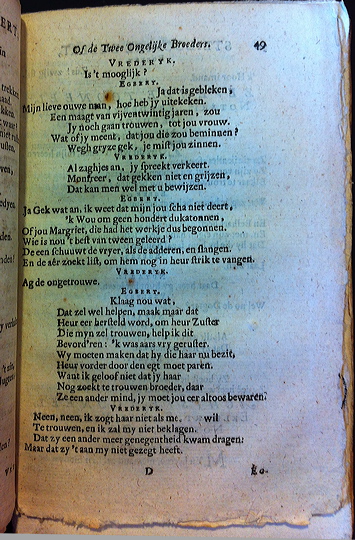 Of de Twee Ongelijke Broeders. 49
VREDERYK.
Is 't mooglijk?
EGBERT.
Ja dat is gebleken,
Mijn lieve ouwe man, hoe heb jy uitekeken.
Een maagt van vijventwintig jaren, zou
Jy noch gaan trouwen, tot jou vrouw.
Wat of jy meent, dat jou die zou beminnen?
Wegh gryze gek, je mist jou zinnen.
VREDERYK.
Al zaghjes an, jy spreekt verkeert.
Monfreer, dat gekken niet en grijzen,
Dat kan men wel met u bewijzen.
EGBERT.
Ja Gek wat an, ik weet dat mijn jou scha niet deert,
'k Wou om geen hondert dukatonnen,
Of jou Margriet, die had het werkje dus begonnen.
Wie is nou 't best van tween geleerd?
De een schuuwt de vryer, als de adderen, en slangen.
En de aêr zoekt list, om hem nog in heur strik te vangen.
VREDERYK.
Ag de ongetrouwe.
EGBERT.
Klaag nou wat,
Dat zel wel helpen, maak maar dat
Heur eer hersteld word, om heur Zuster
Die myn zel trouwen, help ik dit
Bevord'ren: 'k was aars vry geruster.
Wy moeten maken dat hy die haar nu bezit,
Heur vorder door den egt moet paren.
Want ik geloof niet dat jy haar
Nog zoekt te trouwen broeder, daar
Ze een ander mind, jy moet jou eer altoos bewaren.
VREDERYK.
Neen, neen, ik zogt haar niet als me, wil
Te trouwen, en ik zal my niet beklagen.
Dat zy een ander meer genegentheid kwam dragen:
Maar dat zy 't aan my niet gezegt heeft.
D